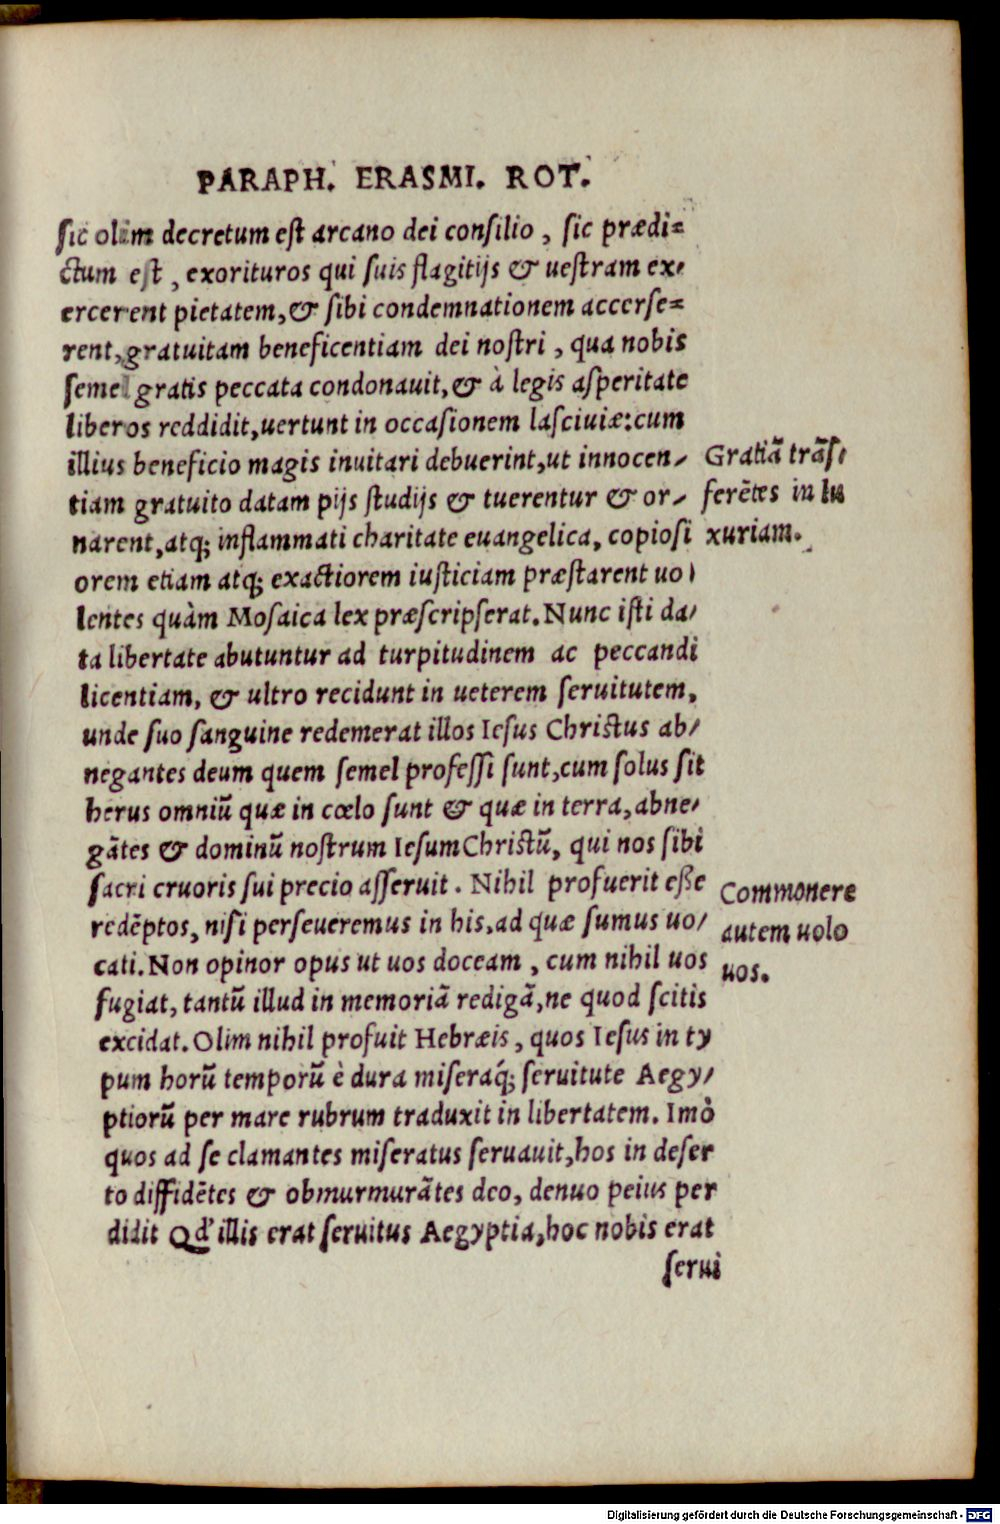 PARAPH. ERASMI. ROT.
sic olim decretum est arcano dei consilio, sic prædi=
ctum est, exorituros qui suis flagitijs & uestram ex-
ercerent pietatem, & sibi condemnationem accerse=
rent, gratuitam beneficentiam dei nostri, qua nobis
semel gratis peccata condonauit, & à legis asperitate
liberos reddidit, uertunt in occasionem lasciuiæ: cum
illius beneficio magis inuitari debuerint, ut innocen-
tiam gratuito datam pijs studijs & tuerentur & or-
narent, atq; inflammati charitate euangelica, copiosi
orem etiam atq; exactiorem iusticiam præstarent uo-
lentes quàm Mosaica lex præscripserat. Nunc isti da-
ta libertate abutuntur ad turpitudinem ac peccandi
licentiam, & ultro recidunt in ueterem seruitutem,
unde suo sanguine redemerat illos Iesus Christus ab-
negantes deum quem semel professi sunt, cum solus sit
herus omniũ quæ in cœlo sunt & quæ in terra, abne-
gãtes & dominũ nostrum Iesum Christũ, qui nos sibi
sacri cruoris sui precio asseruit. Nihil profuerit eße
redẽptos, nisi perseueremus in his, ad quæ sumus uo-
cati. Non opinor opus ut uos doceam, cum nihil uos
fugiat, tantũ illud in memoriã redigã, ne quod scitis
excidat. Olim nihil profuit Hebræis, quos Iesus in ty
pum horũ temporũ è dura miseraq́; seruitute Aegy-
ptiorũ per mare rubrum traduxit in libertatem. Imò
quos ad se clamantes miseratus seruauit, hos in deser
to diffidẽtes & obmurmurãtes deo, denuo peius per
didit Qd' illis erat seruitus Aegyptia, hoc nobis erat
serui
Gratiã trãs-
ferẽtes in lu
xuriam.
Commonere
autem uolo
uos.
Digitalisierung gefördert durch die Deutsche Forschungsgemeinschaft - DFG